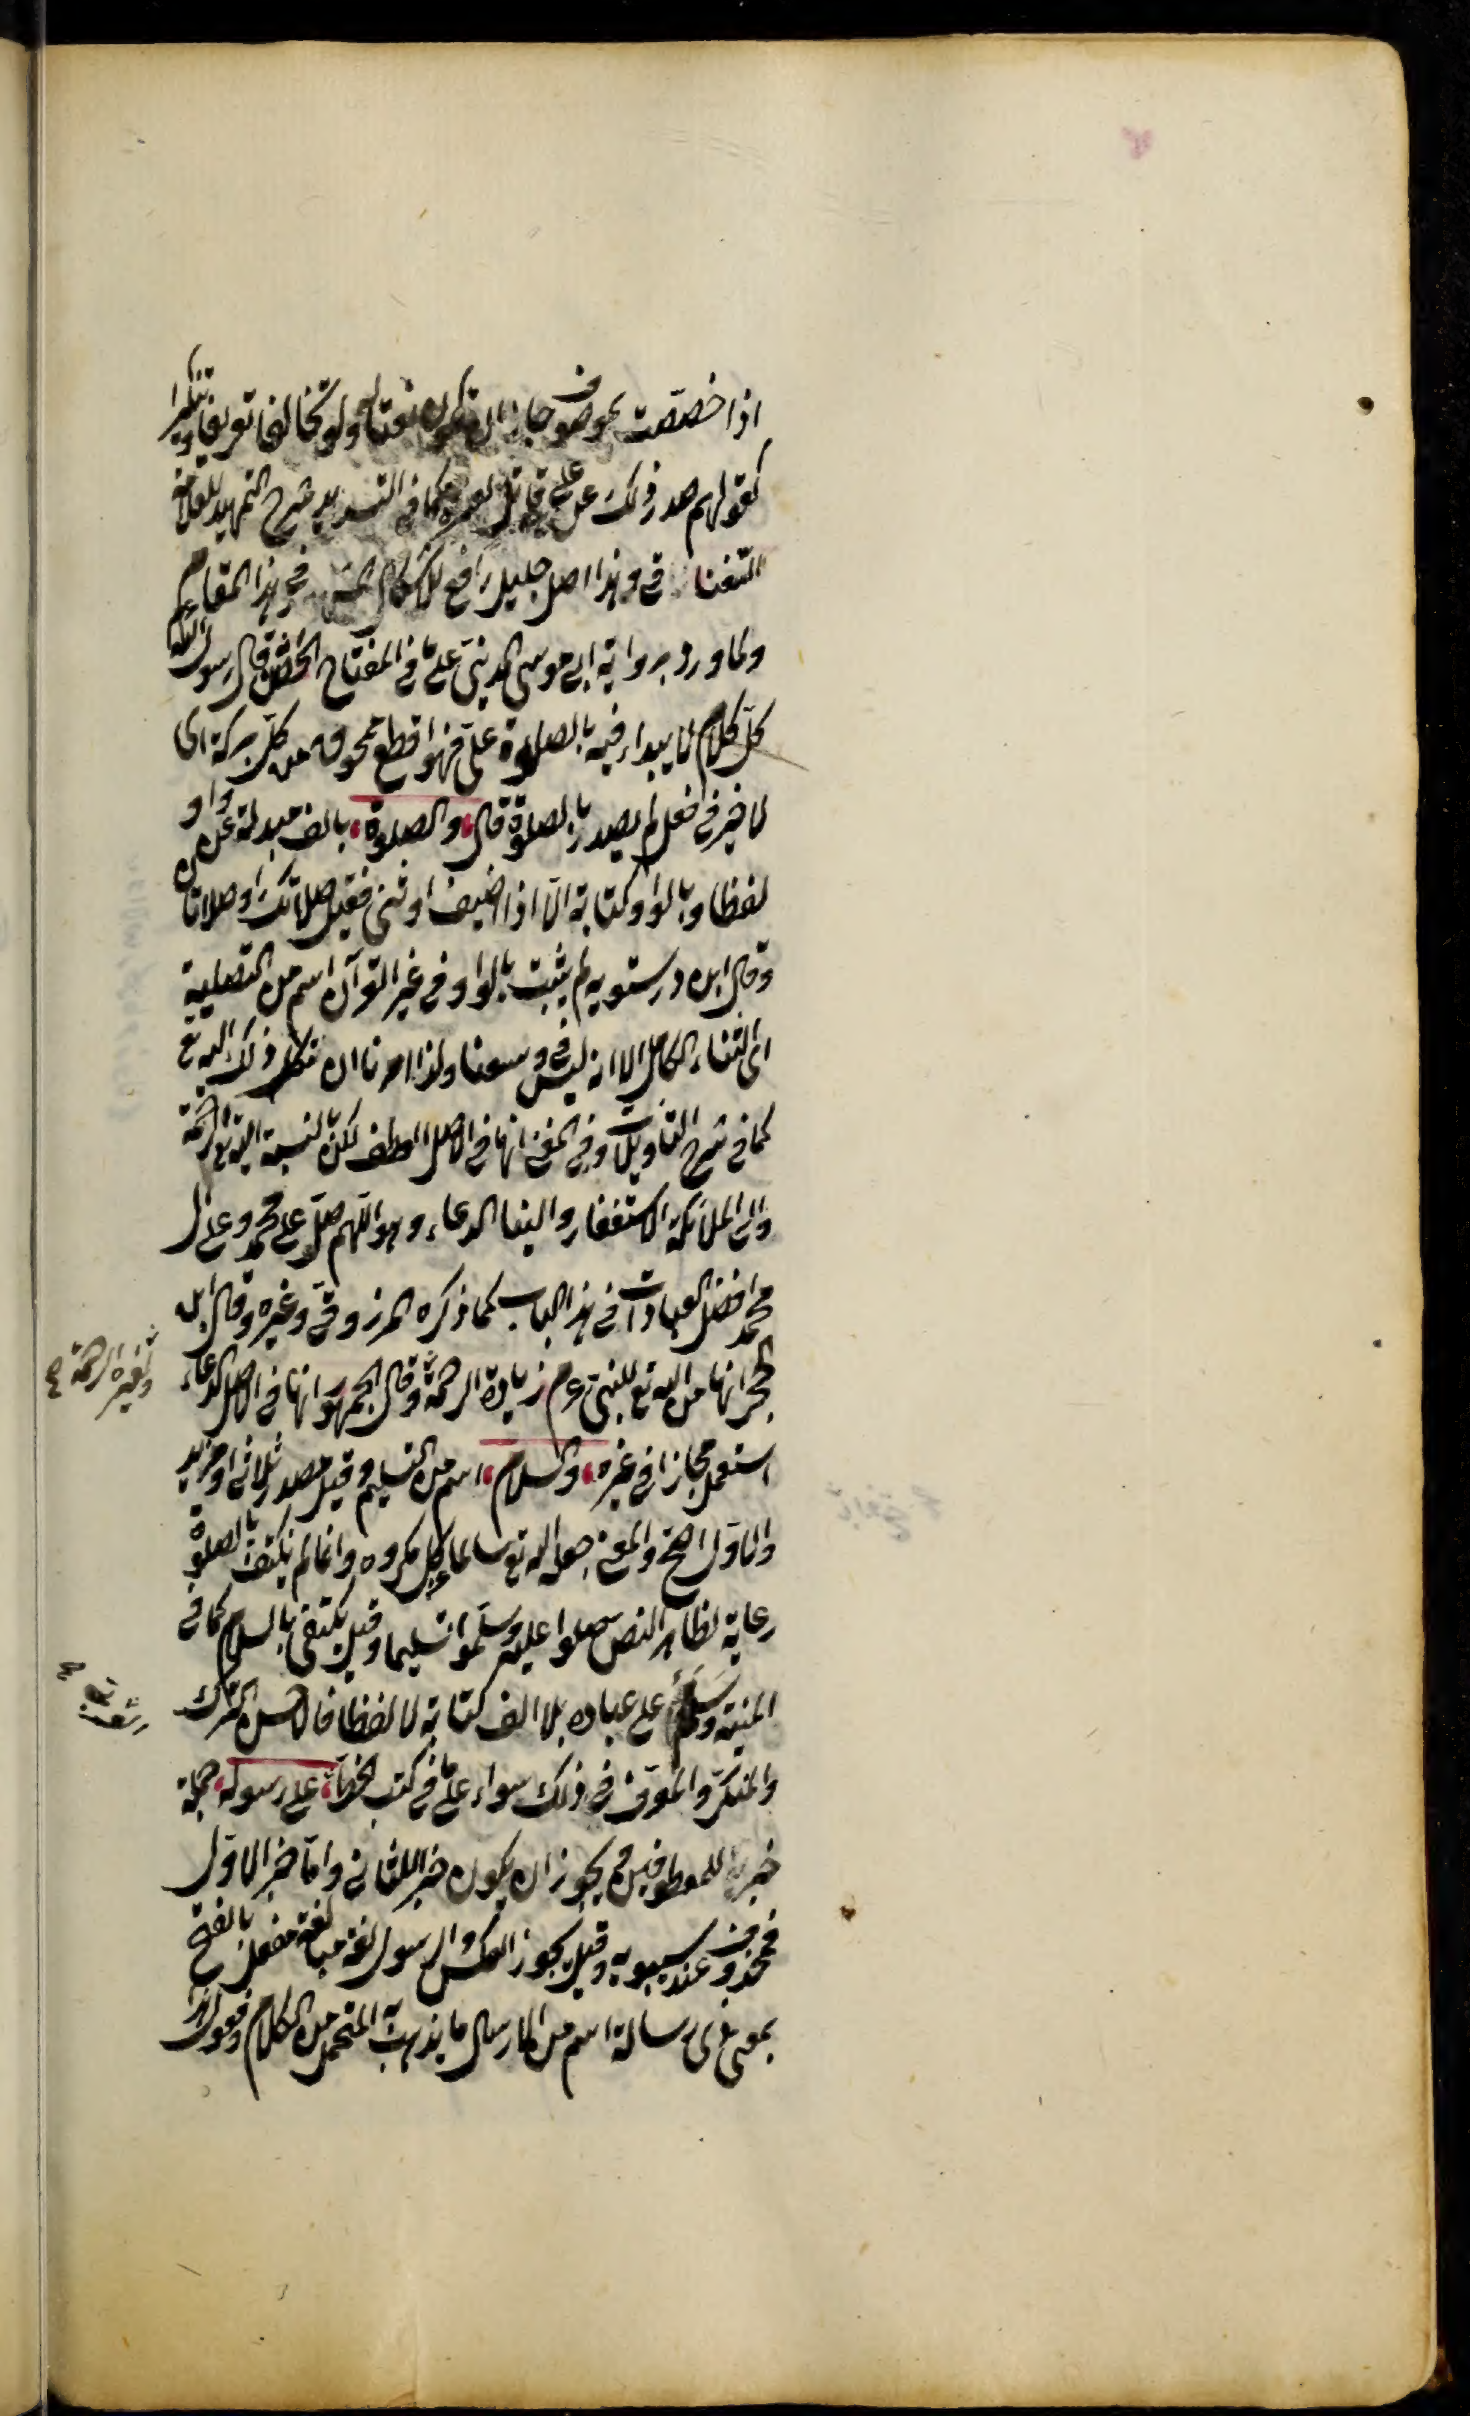 اذا خصصت بموصوف جاز ان تكون نعتا له ولو تخالفا تعريفا وتنكيرا
كقولهم صدر ذلك عن على قائل كما فى التسديد شرح التمهيد للعلامة
السغناقى وهذا اصل جليل رافع للاشكال فى هذا المقام
ولما ورد برواية ابى موسى المدينى على ما فى المفتاح قال رسول الله
كل كلام لا يبداء فيه بالصلوة على فهو اقطع ممحوق من كل بركة اى
لا خير فى فعل لم يصدر بالصلوة قال والصلوة بالف مبدلة عن واو
لفظا وبالواو كتابة الا اذا اضيف او ثنى فقيل صلاتك او صلاتان
وقال ابن درستويه لم يثبت بالواو فى غير القرآن اسم من التصلية
اى الثناء الكامل الا انه ليس فى وسعنا ولذا امرنا ان نكل ذلك اليه تع
كما فى شرح التأويلات وفى المغنى انها فى الاصل العطف لكن بالنسبة اليه تع الرحمة
والى الملائكة الاستغفار والينا الدعاء وهو اللهم صل على محمد وعلى ال
محمد افضل العبادات فى هذا الباب كما ذكره المرزوقى وغيره وقال ابن
حجر انها من الله تع للنبى عم زيادة الرحمة وقال الجمهور انها فى الاصل الدعاء
ولغيره الرحمة صح
استعمل مجازا فى غيره والسلام اسم من التسليم وقيل مصدر ثلاثى او مزيد
والاول اصح والمعنى جعله الله تع سالما عن كل مكروه وانما لم يكتف بالصلوة
رعاية لظاهر النص صلوا عليه وسلموا تسليما وقيل يكتفى بالسلام كما فى
المنية وسلم على عباده بلا الف كتابة لا لفظا فالاحسن الترك
والمنكر والمعرف فى ذلك سواء على ما فى كتب الخط على رسوله جملة
خبرية للمعطوفين ثم يجوز ان يكون خبرا للثانى واما خبر الاول
فمحذوف عند سيبويه وقيل يجوز العكس والرسول لغة مبالغة مفعل بالفتح
بمعنى ذى رسالة اسم من الارسال ما يذهب به المتحمل من الكلام وفعول